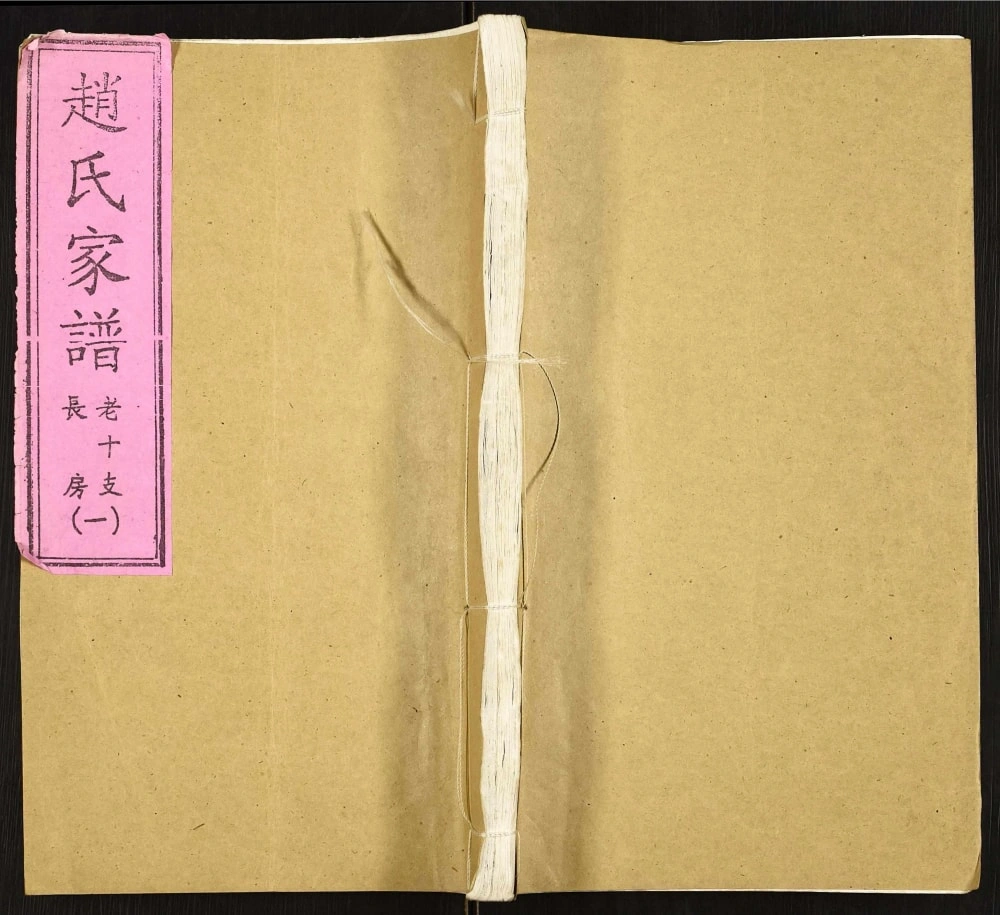 趙氏家譜
老十支
長房
(一)